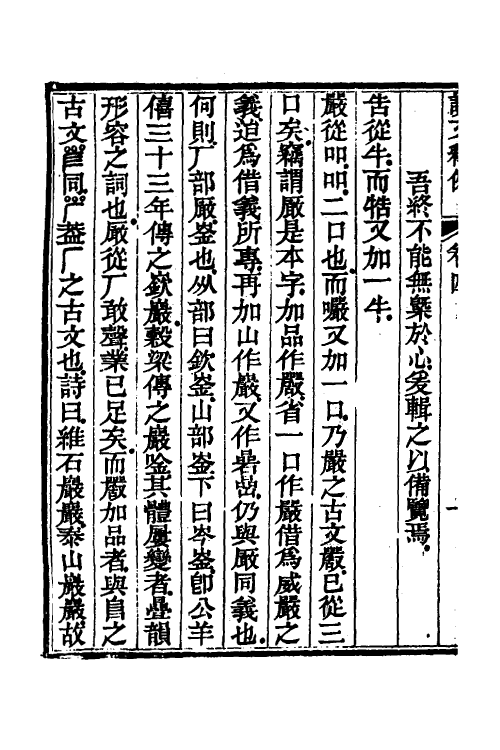 說文釋例 卷四
吾終不能無槩於心爰輯之以備覽焉
告從牛而牿又加一牛
嚴從吅吅二口也而㘙又加一口乃嚴之古文𠪚已從三
口矣竊謂厰是本字加品作𠪚省一口作嚴借為威嚴之
義迫為借義所專再加山作巖又作碞嵒仍與厰同義也
何則厂部厰崟也㐺部曰欽崟山部崟下曰岑崟卽公羊
僖三十三年傳之嶔巖穀梁傳之巖唫其體屢變者疊韻
形容之詞也厰從厂敢聲業已足矣而𠪚加品者與𠂤之
古文同蓋厂之古文也詩曰維石巖巖泰山巖巖故